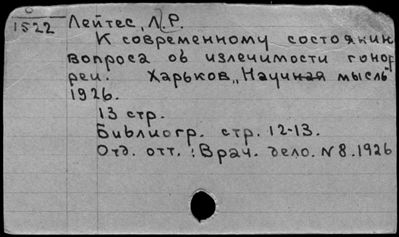 1522
Лейтес, Л.Р.
К современному состоянию
вопроса об излечимости гонор
реи. Харьков, „Научная мысль"
1926.
13 стр.
Библиогр. стр. 12-13.
Отд. отт.: Врач. дело. N 8. 1926